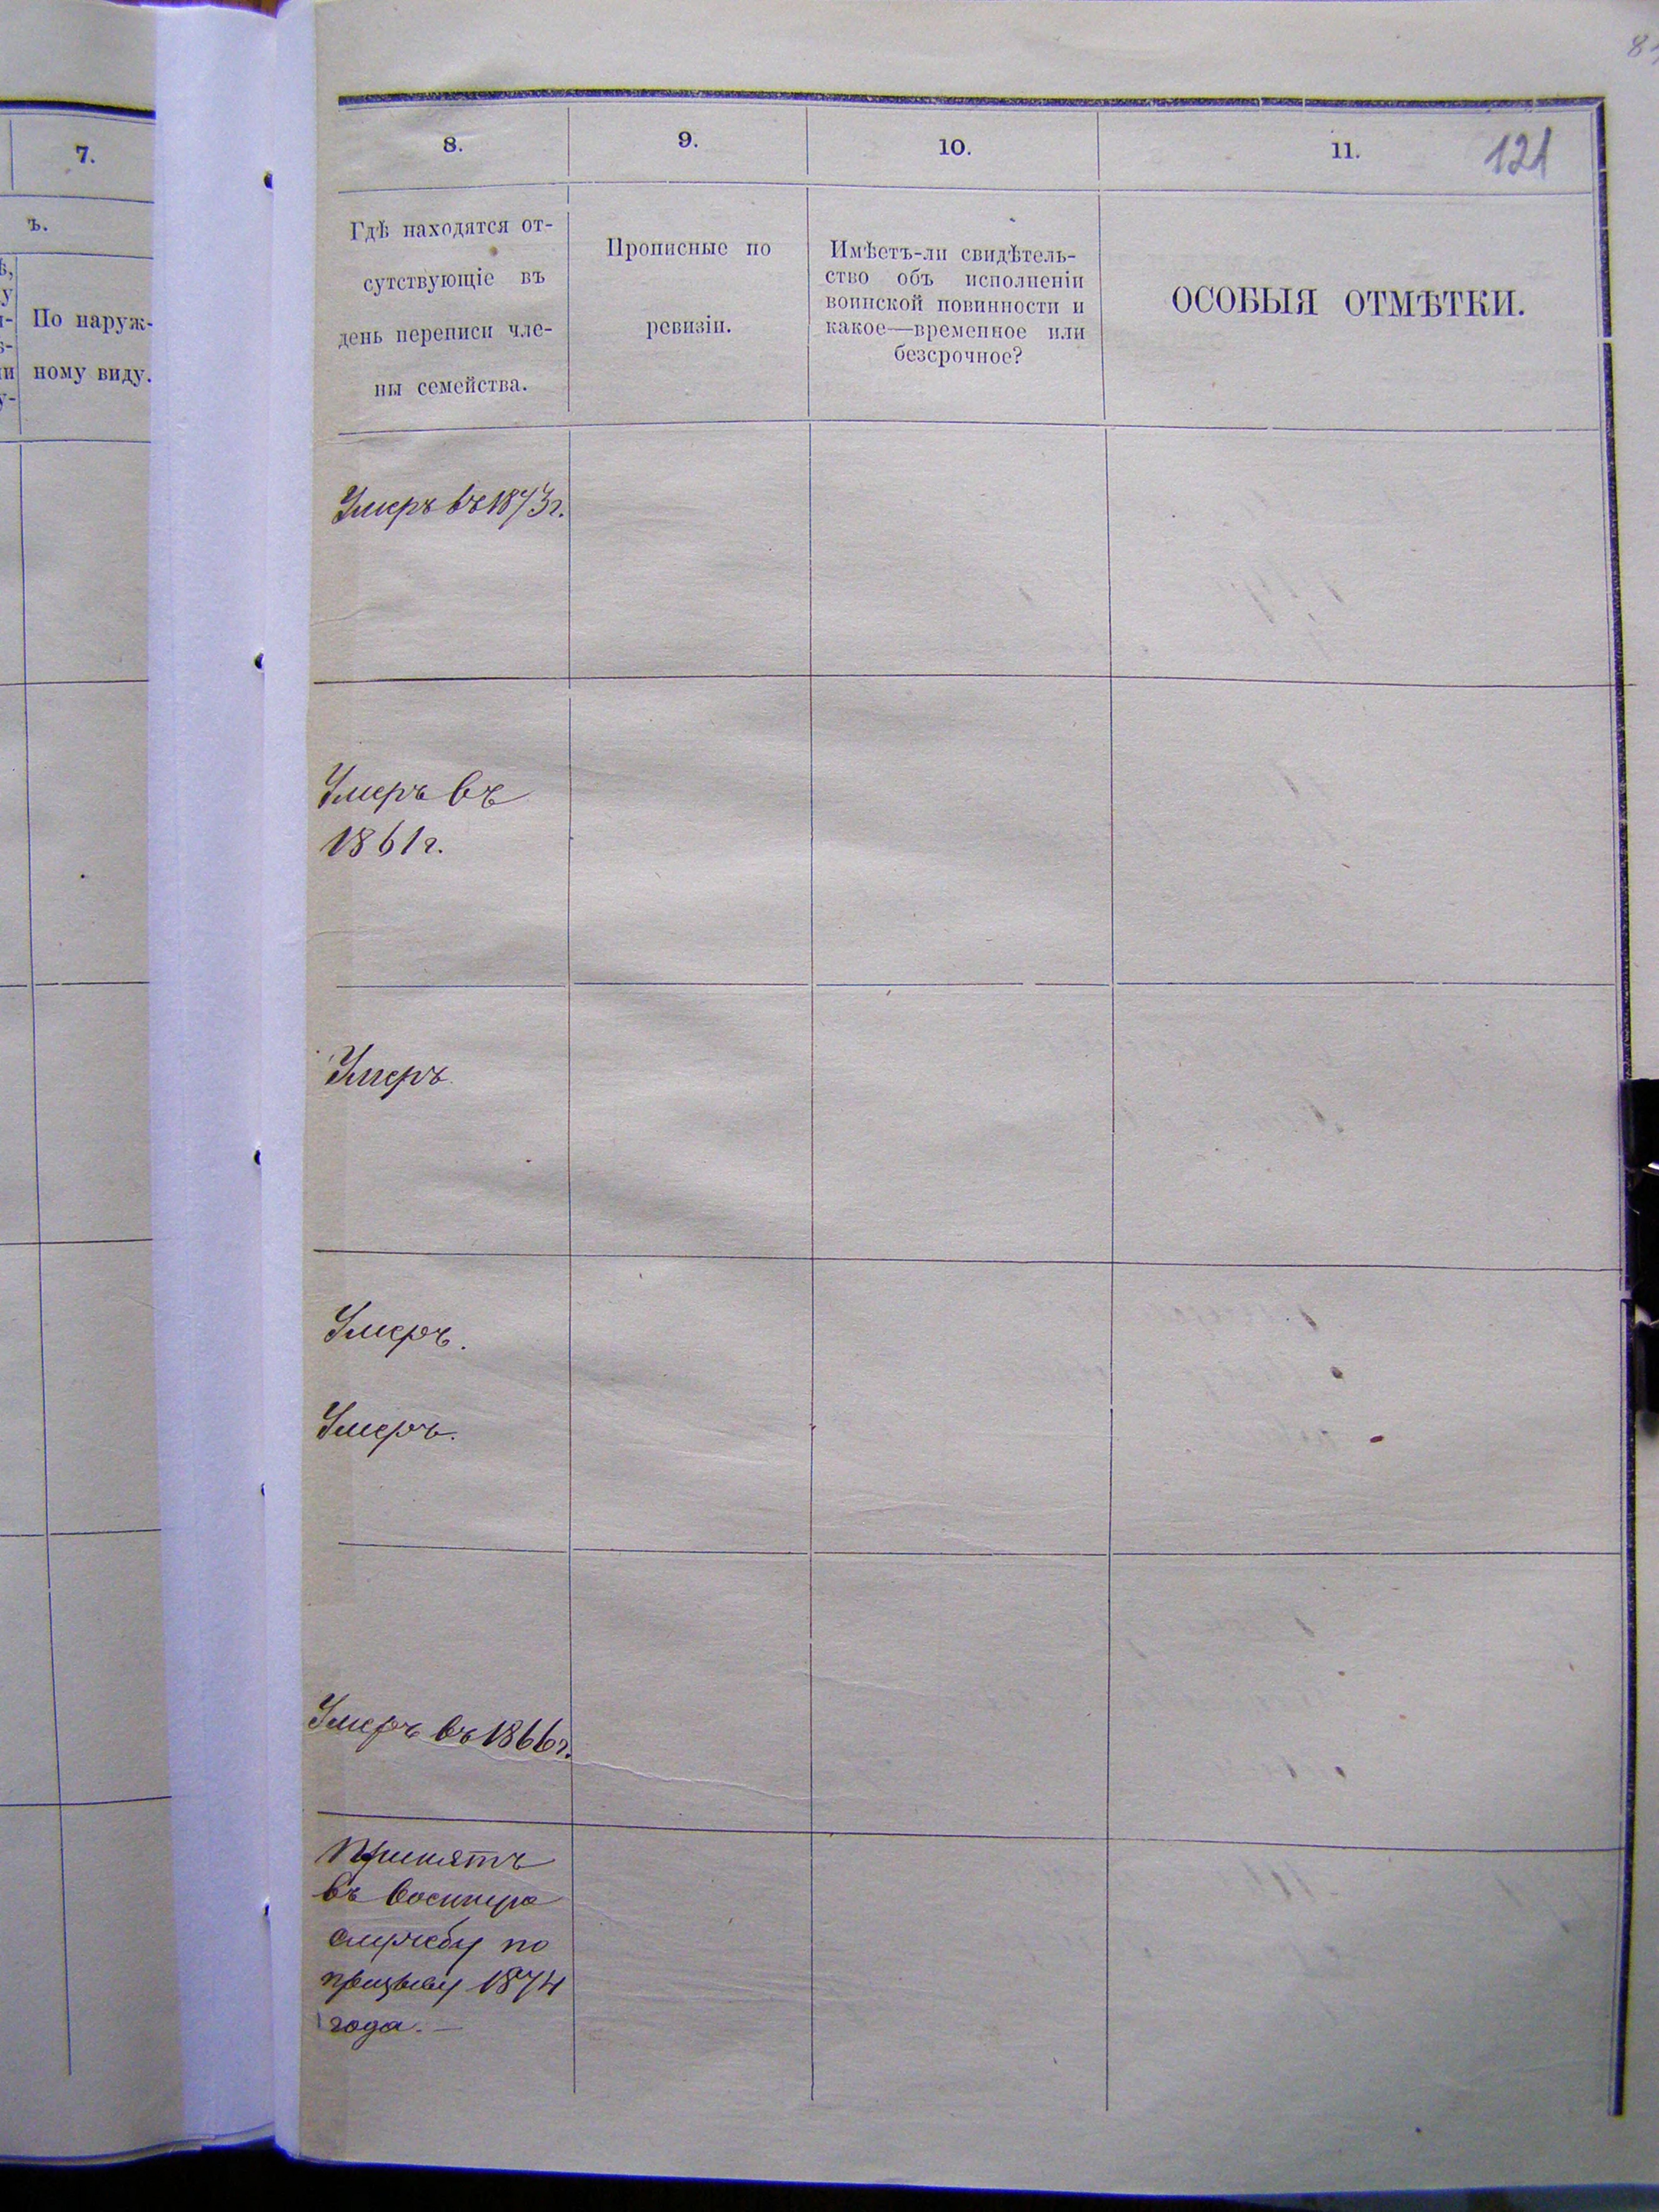 7.
ъ.
По наруж-
ному виду.
8.
9.
10.
11.
121
Гдѣ находятся от-
сутствующіе въ
день переписи чле-
ны семейства.
Прописные по
ревизіи.
Имѣетъ-ли свидѣтель-
ство объ исполненіи
воинской повинности и
какое—временное или
безсрочное?
ОСОБЫЯ ОТМѢТКИ.
Умеръ въ 1873 г.
Умеръ въ
1861 г.
Умеръ
Умеръ.
Умеръ.
Умеръ въ 1866 г.
Принятъ
въ военную
службу по
призыву 1874
года.—